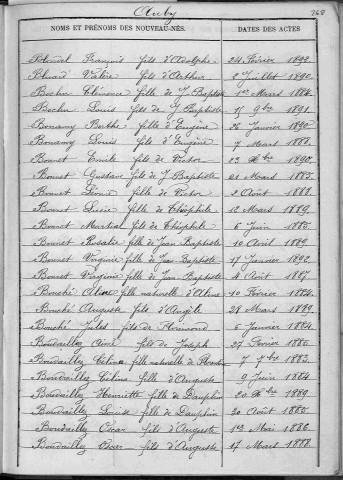 Auby
268
NOMS ET PRÉNOMS DES NOUVEAU-NÉS.
DATES DES ACTES
Blondel François fils d'Adolphe 24 Février 1892.
Bluard Valère fils d'Arthur 2 Juillet 1890.
Boclin Clémence fille de J. Baptiste 1er Mars 1884.
Boclin Louis fils de J. Baptiste 15 9bre 1891.
Bonamy Berthe fille d'Eugène 26 Janvier 1890.
Bonamy Louis fils d'Eugène 7 Mars 1888.
Bonnet Emile fils de Victor 22 Xbre 1890.
Bonnet Gustave fils de J. Baptiste 21 Mars 1883.
Bonnet Léonie fille de Victor 2 Août 1888.
Bonnet Lucie fille de Théophile 12 Mars 1889.
Bonnet Martin fils de Théophile 6 Juin 1885.
Bonnet Rosalie fille de Jean Baptiste 10 Avril 1889.
Bonnet Virginie fille de Jean Baptiste 17 Janvier 1892.
Bonnet Virginie fille de Jean Baptiste 4 Août 1887.
Bouché Aline fille naturelle d'Aline 10 Février 1884.
Bouché Auguste fils d'Angèle 28 Mars 1889.
Bouché Jules fils de Florimond 6 Janvier 1884.
Boudaillez Aimé fils de Joseph 27 Février 1886.
Boudaillez Céline fille naturelle de 7 7bre 1883.
Boudaillez Céline fille d'Auguste 9 Juin 1884.
Boudaillez Henriette fille de Dauphin 20 Xbre 1889.
Boudaillez Louise fille de Dauphin 20 Août 1885.
Boudaillez Oscar fils d'Auguste 1er Mai 1886.
Boudaillez Oscar fils d'Auguste 17 Mars 1888.